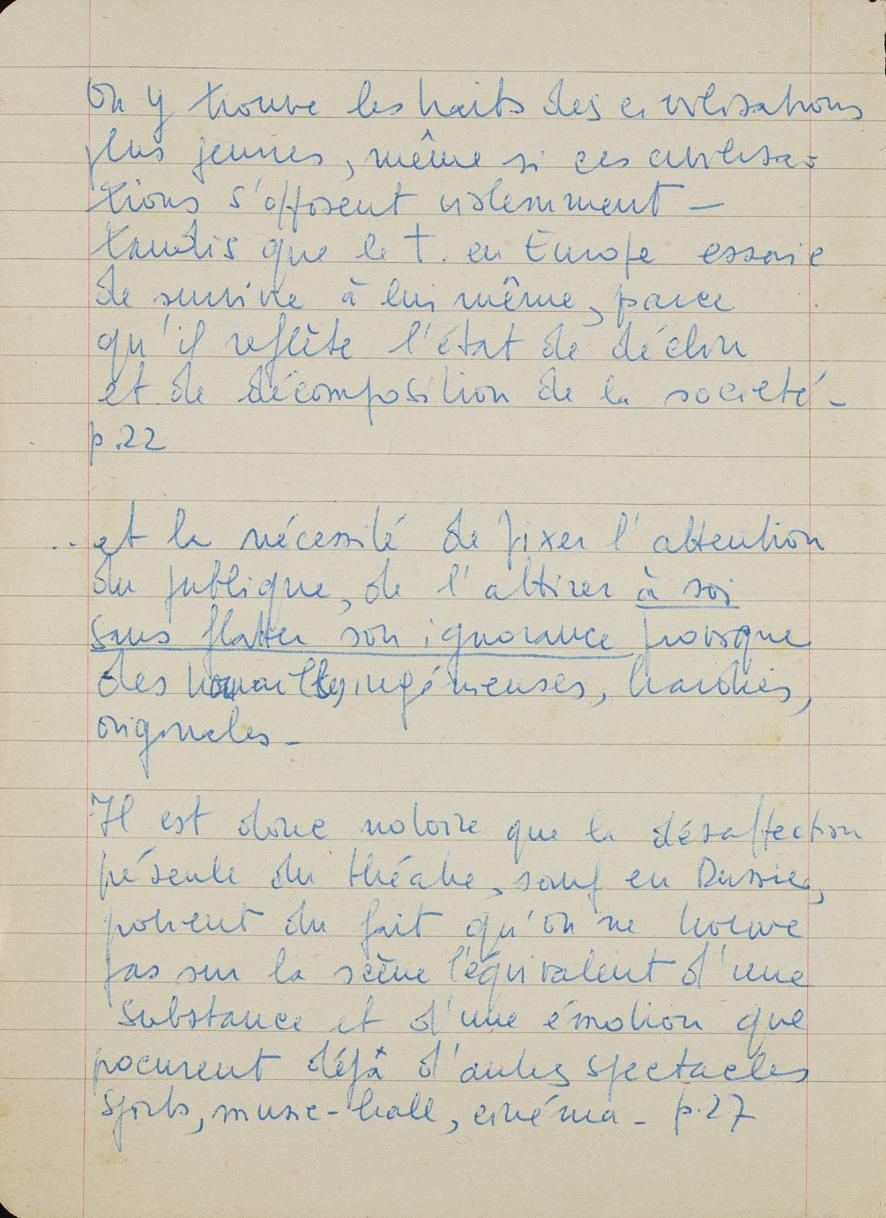 On y trouve les traits des civilisations
plus jeunes, même si ces civilisa-
tions s'opposent violemment –
tandis que le t. en Europe essaie
de survivre à lui même, parce
qu'il reflète l'état de déclin
et de décomposition de la societé –
p.22
... et la nécessité de fixer l'attention
du publique, de l'attirer à soi
sans flatter son ignorance provoque
des trouvailles, ingénieuses, hardies,
originales –
Il est donc notoire que la désaffection
présente du théatre, sauf en Russie,
provient du fait qu'on ne trouve
pas sur la scène l'équivalent d'une
substance et d'une émotion que
procurent déjà d'autres spectacles
sports, music-hall, cinéma – p.27